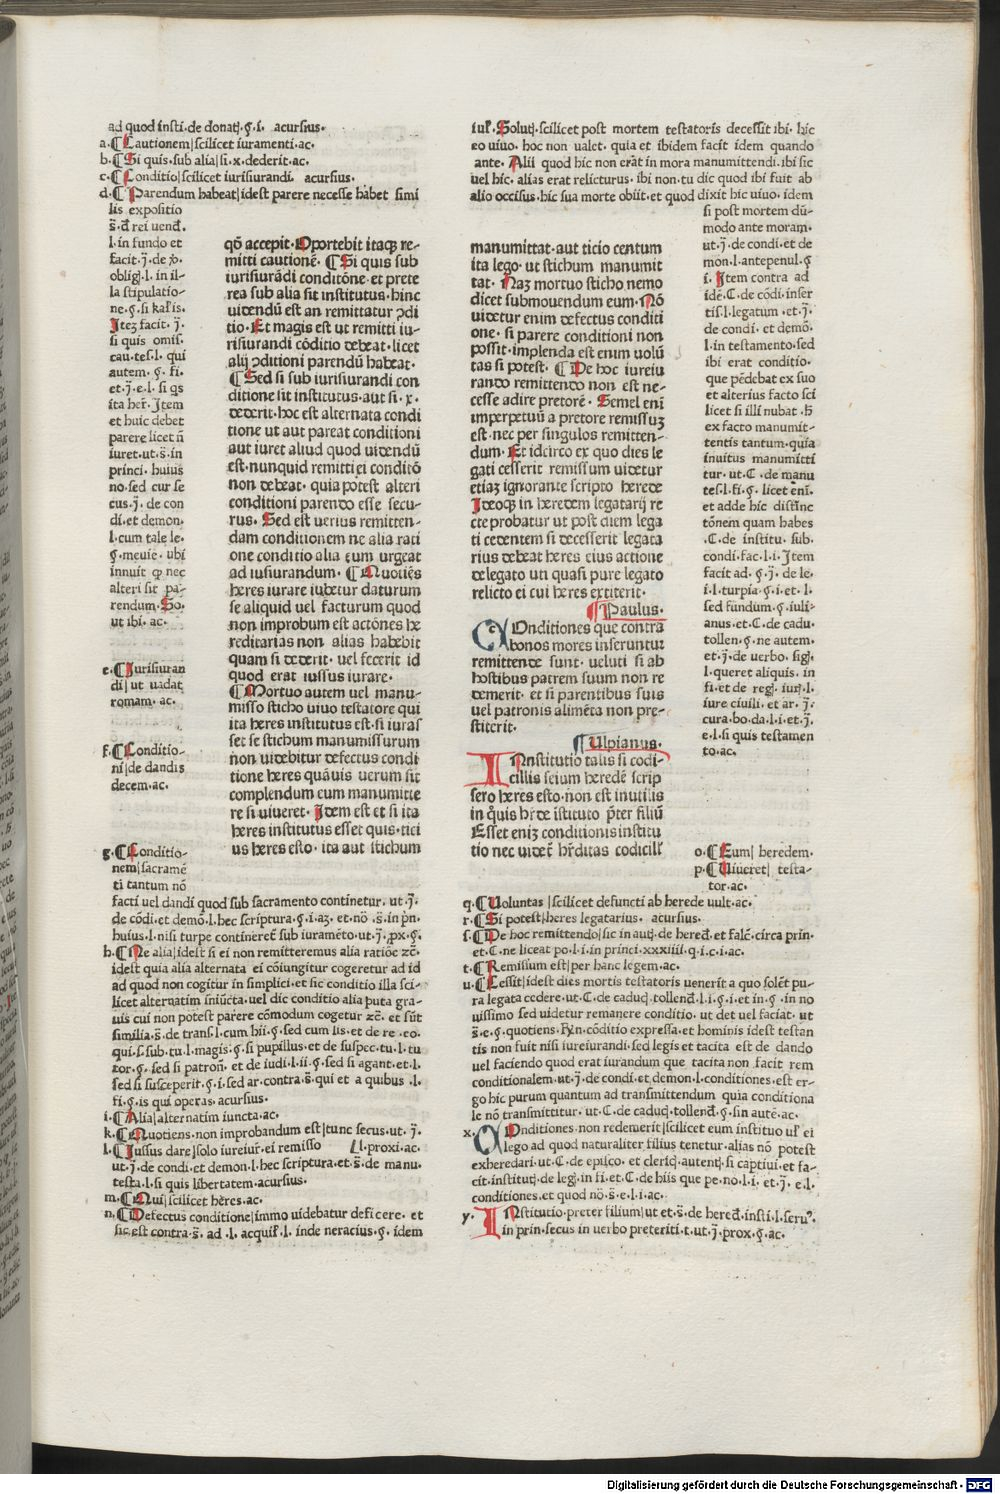 ad quod insti. de donatꝭ. §. i. acursius.
a. ¶ Cautionem|scilicet iuramenti. ac.
b. ¶ Si quis. sub alia|si. x. dederit. ac.
c. ¶ Conditio|scilicet iurisiurandi. acursius.
d. ¶ Parendum habeat|idest parere necesse habet simi
lis expositio
s̄. đ rei uend̄.
l. in fundo et
facit. j̄. de
obligꝭ. l. in il-
la stipulatio-
ne. §. si kal'is.
Itez facit. j̄.
si quis omis.
cau. tes. l. qui
autem. §. fi.
et. j̄. e. l. si qs
ita her̄. Item
et huic debet
parere licet ñ
iuret. ut. s̄. in
princi. huius
no. sed cur se
cus. j̄. de con
di. et demon.
l. cum tale le.
§. meuie. ubi
innuit ꝙ nec
alteri sit pa-
rendum. So.
ut ibi. ac.
e. ¶ Iurisiuran
di|ut uadat
romam. ac.
f. ¶ Conditio-
ni|de dandis
decem. ac.
g. ¶ Conditio-
nem|sacramē
ti tantum nō
facti uel dandi quod sub sacramento continetur. ut. j̄.
de cōdi. et demō. l. hec scriptura. §. i. az. et. nō. s̄. in p̄n.
huius. l. nisi turpe contineret̄ sub iuramēto. ut. j̄. ꝓx. §.
h. ¶ Ne alia|idest si ei non remitteremus alia ratiōe zc̄.
idest quia alia alternata ei cōiungitur cogeretur ad id
ad quod non cogitur in simplici. et sic conditio illa sci-
licet alternatim iniūcta. uel dic conditio alia puta gra-
uis cui non potest parere cōmodum cogetur zc̄. et sūt
similia. s̄. de trans. l. cum hii. §. sed cum lis. et de re. eo.
qui. s. sub. tu. l. magis. §. si pupillus. et de suspec. tu. l. tu
tor. §. sed si patron̄. et de iudi. l. ii. §. sed si agant. et. l.
sed si susceperit. §. i. sed ar. contra. s̄. qui et a quibus. l.
fi. §. is qui operas. acursius.
i. ¶ Alia|alternatim iuncta. ac.
k. ¶ Quotiens. non improbandum est|tunc secus. ut. j̄.
l. ¶ Iussus dare|solo iureiur̄. ei remisso l. proxi. ac.
ut. j̄. de condi. et demon. l. hec scriptura. et. s̄. de manu.
testa. l. si quis libertatem. acursius.
m. ¶ Qui|scilicet heres. ac.
n. ¶ Defectus conditione|immo uidebatur deficere. et
sic est contra. s̄. ad. l. acquir̄. l. inde neracius. §. idem
qō accepit. Oportebit itaqꝫ re-
mitti cautionē. ¶ Si quis sub
iurisiurādi conditōne. et prete
rea sub alia sit institutus. hinc
uidendū est an remittatur ꝯdi
tio. Et magis est ut remitti iu-
risiurandi cōditio debeat. licet
alij ꝯditioni parendū habeat.
¶ Sed si sub iurisiurandi con
ditione sit institutus. aut si. x.
dederit. hoc est alternata condi
tione ut aut pareat conditioni
aut iuret aliud quod uidendū
est. nunquid remitti ei conditō
non debeat. quia potest alteri
conditioni parendo esse secu-
rus. Sed est uerius remitten-
dam conditionem ne alia rati
one conditio alia eum urgeat
ad iusiurandum. ¶ Quotiēs
heres iurare iubetur daturum
se aliquid uel facturum quod
non improbum est actōnes he
reditarias non alias habebit
quam si dederit. uel fecerit id
quod erat iussus iurare.
¶ Mortuo autem uel manu-
misso sticho uiuo testatore qui
ita heres institutus est. si iuras
set se stichum manumissurum
non uidebitur defectus condi
tione heres quāuis uerum sit
complendum eum manumitte
re si uiueret. Idem est et si ita
heres institutus esset quis. tici
us heres esto. ita aut stichum
iur̄. Solutꝭ. scilicet post mortem testatoris decessit ibi. hic
eo uiuo. hoc non ualet. quia et ibidem facit idem quando
ante. Alii quod hic non erat in mora manumittendi. ibi sic
uel hic. alias erat relicturus. ibi non. tu dic quod ibi fuit ab
alio occisus. hic sua morte obiit. et quod dixit hic uiuo. idem
si post mortem dū-
modo ante moram.
ut. j̄. de condi. et de
mon. l. antepenul. §
i. Item contra ad
idē. C. de cōdi. inser
tis. l. legatum. et. j̄.
de condi. et demō.
l. in testamento. sed
ibi erat conditio.
que pēdebat ex suo
et alterius facto sci
licet si illi nubat. h̄
ex facto manumit-
tentis tantum. quia
inuitus manumitti
tur. ut. C. de manu
tes. l. fi. §. licet eni.
et adde hic distinc
tōnem quam habes
. C. de institu. sub.
condi. fac. l. i. Item
facit ad. §. j̄. de le.
i. l. turpia. §. i. et. l.
sed fundum. §. iuli-
anus. et. C. de cadu.
tollen. §. ne autem.
et. j̄. de uerbo. sigꝭ.
l. queret aliquis. in
fi. et de regꝭ. iur̄. l.
iure ciuili. et ar. j̄.
cura. bo. da. l. i. et. j̄.
e. l. si quis testamen
to. ac.
manumittat. aut ticio centum
ita lego. ut stichum manumit
tat. Naz mortuo sticho nemo
dicet submouendum eum. Nō
uidetur enim defectus conditi
one. si parere conditioni non
possit. implenda est enim uolū
tas si potest. ¶ De hoc iureiu
rando remittendo non est ne-
cesse adire pretorē. Semel eni
imperpetuū a pretore remissuz
est. nec per singulos remitten-
dum. Et idcirco ex quo dies le
gati cesserit remissum uidetur
etiaz ignorante scripto herede
Ideoqꝫ in heredem legatarij re
cte probatur ut post diem lega
ti cedentem si decesserit legata
rius debeat heres eius actione
de legato uti quasi pure legato
relicto ei cui heres extiterit.
¶ Paulus.
COnditiones que contra
bonos mores inseruntur
remittende sunt. ueluti si ab
hostibus patrem suum non re
demerit. et si parentibus suis
uel patronis alimēta non pre-
stiterit.
¶ Ulpianus.
INstitutio talis si codi-
cillis seium heredē scrip
sero heres esto. non est inutilis
in q̄uis hr̄de īstituto p̄ter filiū
Esset eniz conditionis institu
tio nec uidet̄ hr̄ditas codicill'
o. ¶ Eum| heredem.
p. ¶ Uiueret| testa-
tor. ac.
q. ¶ Uoluntas|scilicet defuncti ab herede uult. ac.
r. ¶ Si potest|heres legatarius. acursius.
s. ¶ De hoc remittendo|sic in autꝭ. de hered̄. et falc̄. circa prin.
et. C. ne liceat po. l. i. in princi. xxxiiii. q. i. c. i. ac.
t. ¶ Remissum est|per hanc legem. ac.
u. ¶ Cessit|idest dies mortis testatoris uenerit a quo solēt pu-
ra legata cedere. ut. C. de caducꝭ. tollend̄. l. i. §. i. et in. §. in no
uissimo sed uidetur remanere conditio. ut det uel faciat. ut
s̄. e. §. quotiens. Rn̄. cōditio expressa. et hominis idest testan
tis non fuit nisi iureiurandi. sed legis et tacita est de dando
uel faciendo quod erat iurandum que tacita non facit rem
conditionalem. ut. j̄. de condi. et demon. l. conditiones. est er-
go hic purum quantum ad transmittendum quia conditiona
le nō transmittitur. ut. C. de caducꝭ. tollend̄. §. sin autē. ac.
x. COnditiones. non redemerit|scilicet eum instituo ul' ei
lego ad quod naturaliter filius tenetur. alias nō potest
exheredari. ut. C. de episco. et clericꝭ. autentꝭ. si captiui. et fa-
cit. institutꝭ. de legꝭ. in fi. et. C. de hiis que pe. no. l. i. et. j̄. e. l.
conditiones. et quod nō. s̄. e. l. i. ac.
y. INstitutio. preter filium|ut et. s̄. de hered̄. insti. l. seruꝰ.
in prin. secus in uerbo preteriti. t. ut. j̄. prox. §. ac.
Digitalisierung gefördert durch die Deutsche Forschungsgemeinschaft - DFG